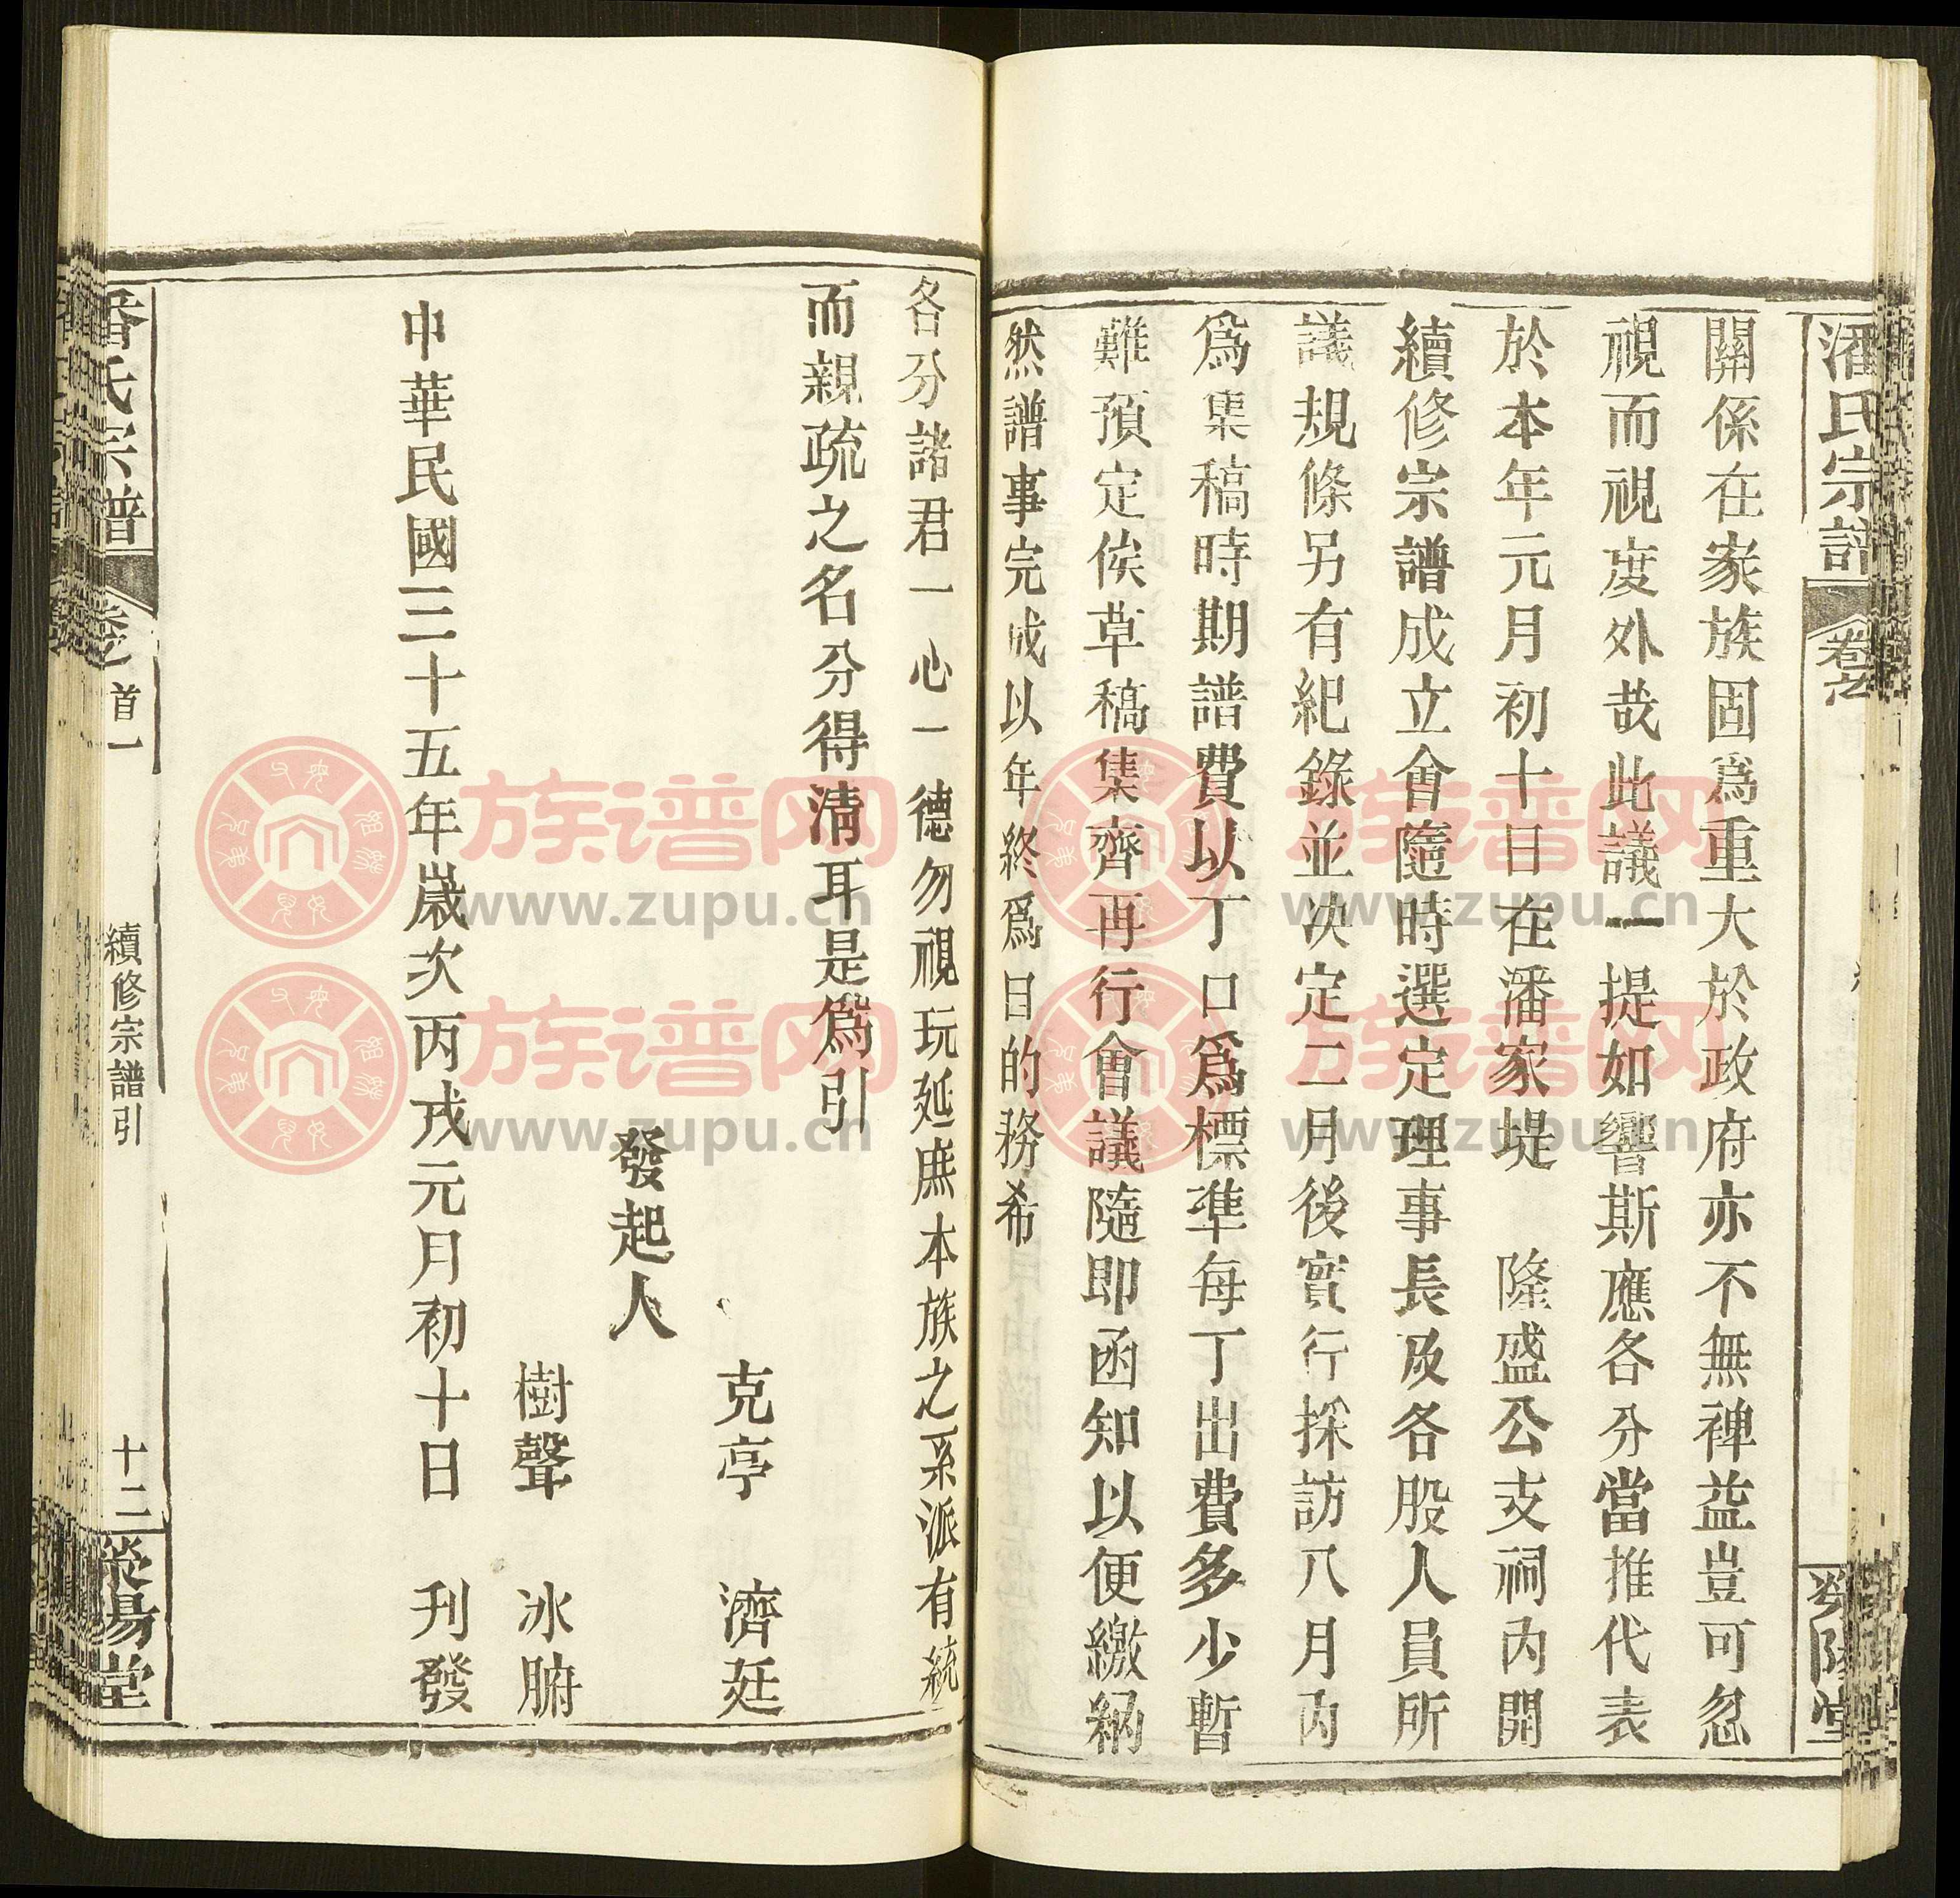 潘氏宗譜
卷之
關係在家族固爲重大於政府亦不無裨益豈可忽
視而視度外哉此議一提如響斯應各分當推代表
於本年元月初十日在潘家堤 隆盛公支祠內開
續修宗譜成立會隨時選定理事長及各股人員所
議規條另有紀錄並決定二月後實行採訪八月內
爲集稿時期譜費以丁口爲標準每丁出費多少暫
難預定俟草稿集齊再行會議隨即函知以便繳納
然譜事完成以年終爲目的務希
各分諸君一心一德勿視玩延庶本族之系派有統
而親疏之名分得清耳是爲引
克亭 濟廷
發起人
樹聲 冰腑
中華民國三十五年歲次丙戌元月初十日 刊發
潘氏宗譜
卷之首一
續修宗譜引
十二
滎陽堂
族谱网
www.zupu.cn
族谱网
www.zupu.cn
族谱网
www.zupu.cn
族谱网
www.zupu.cn